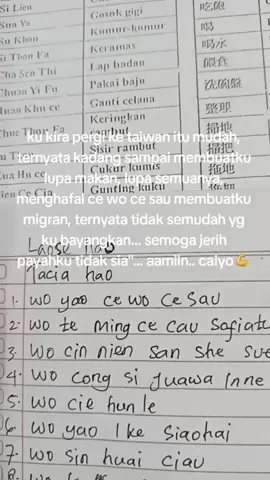 Si Lien
Gosok gigi
Kumur-kumur
Su Khou
Keramas
Si Thou Fa
Lap badan
Cha Sen Thi
Pakai baju
Chuan Yi Fu
Ganti celana
Huan Khu ce
Keringkan
Sisir rambut
Cukur kumis
Gunting kuku
喝
喝水
餵食
洗碗盤
整理
掃地
掃把
拖地
ku kira pergi ke taiwan itu mudah,
ternyata kadang sampai membuatku
lupa makan, lupa semuanya
menghafal ce wo ce sau membuatku
migran, ternyata tidak semudah yg
ku bayangkan... semoga jerih
payahku tidak sia"... aamiin.. caiyo 💪
Laose hao
Tacia hao
1. wo yao ce wo ce sau
2. wo te ming ce cau
3. wo cin nien san she sue
4. wo cong si Juawa Inne
5. wo cie hun le
6. wo yao Ike siaohai
7. wo sin huai ciau